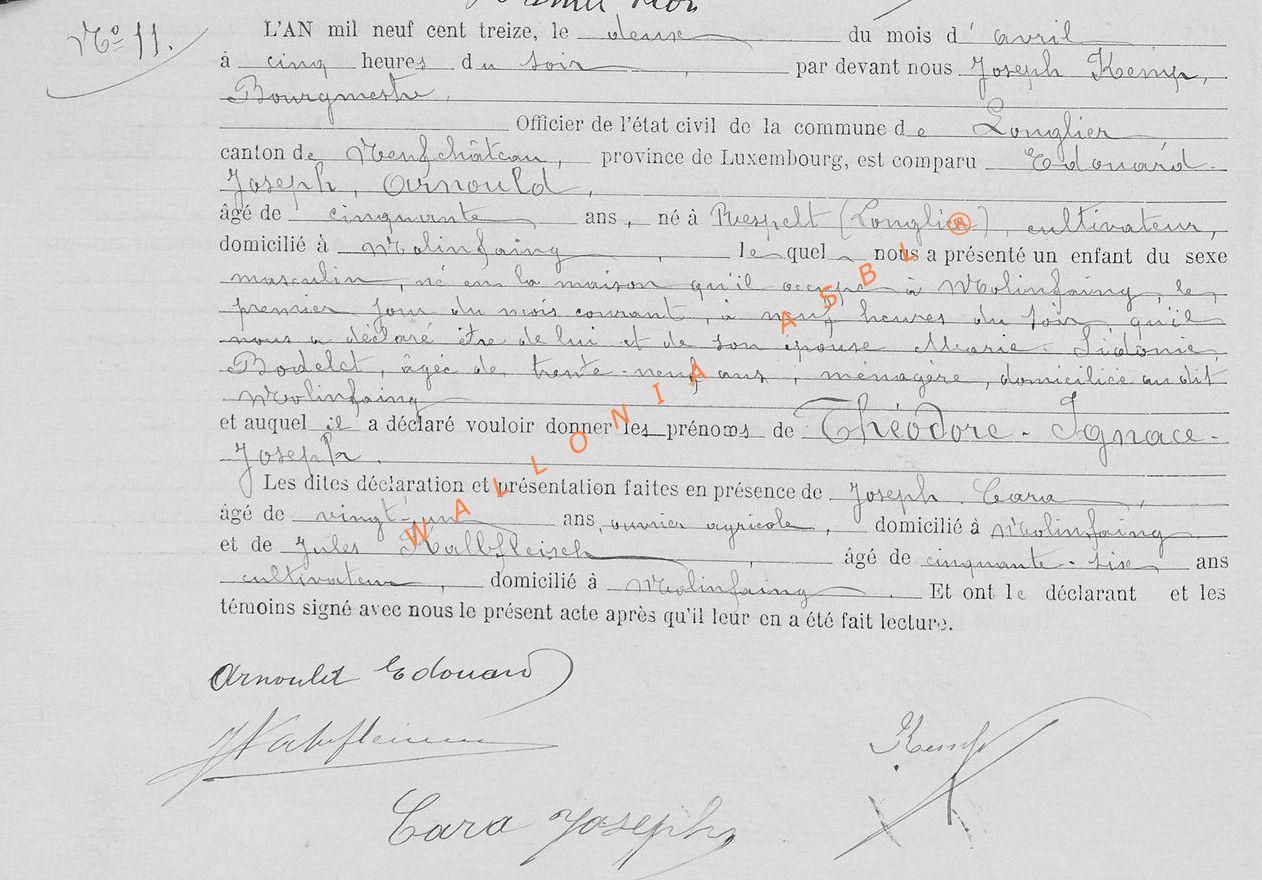 N° 11.
L'AN mil neuf cent treize, le deux du mois d' avril
à cinq heures du soir, par devant nous Joseph Kemp,
Bourgmestre,
Officier de l'état civil de la commune de Longlier
canton de Neufchâteau, province de Luxembourg, est comparu Edouard-
Joseph, Arnould,
âgé de cinquante ans, né à Respelt (Longlier), cultivateur,
domicilié à Molinfaing, lequel nous a présenté un enfant du sexe
masculin, né en la maison qu'il occupe à Molinfaing, le
premier jour du mois courant, à neuf heures du soir, qu'il
nous a déclaré être de lui et de son épouse Marie-Sidonie
Bodelet, âgée de trente-neuf ans, ménagère, domiciliée au dit
Molinfaing
et auquel il a déclaré vouloir donner les prénoms de Théodore-Ignace-
Joseph.
Les dites déclaration et présentation faites en présence de Joseph Cara,
âgé de vingt-un ans, ouvrier agricole, domicilié à Molinfaing
et de Jules Kalbfleisch, âgé de cinquante-six ans
cultivateur, domicilié à Molinfaing. Et ont le déclarant et les
témoins signé avec nous le présent acte après qu'il leur en a été fait lecture.
Arnould Edouard
JKalbfleisch
Kemp
Cara Joseph
WALLONIA ASBL ®